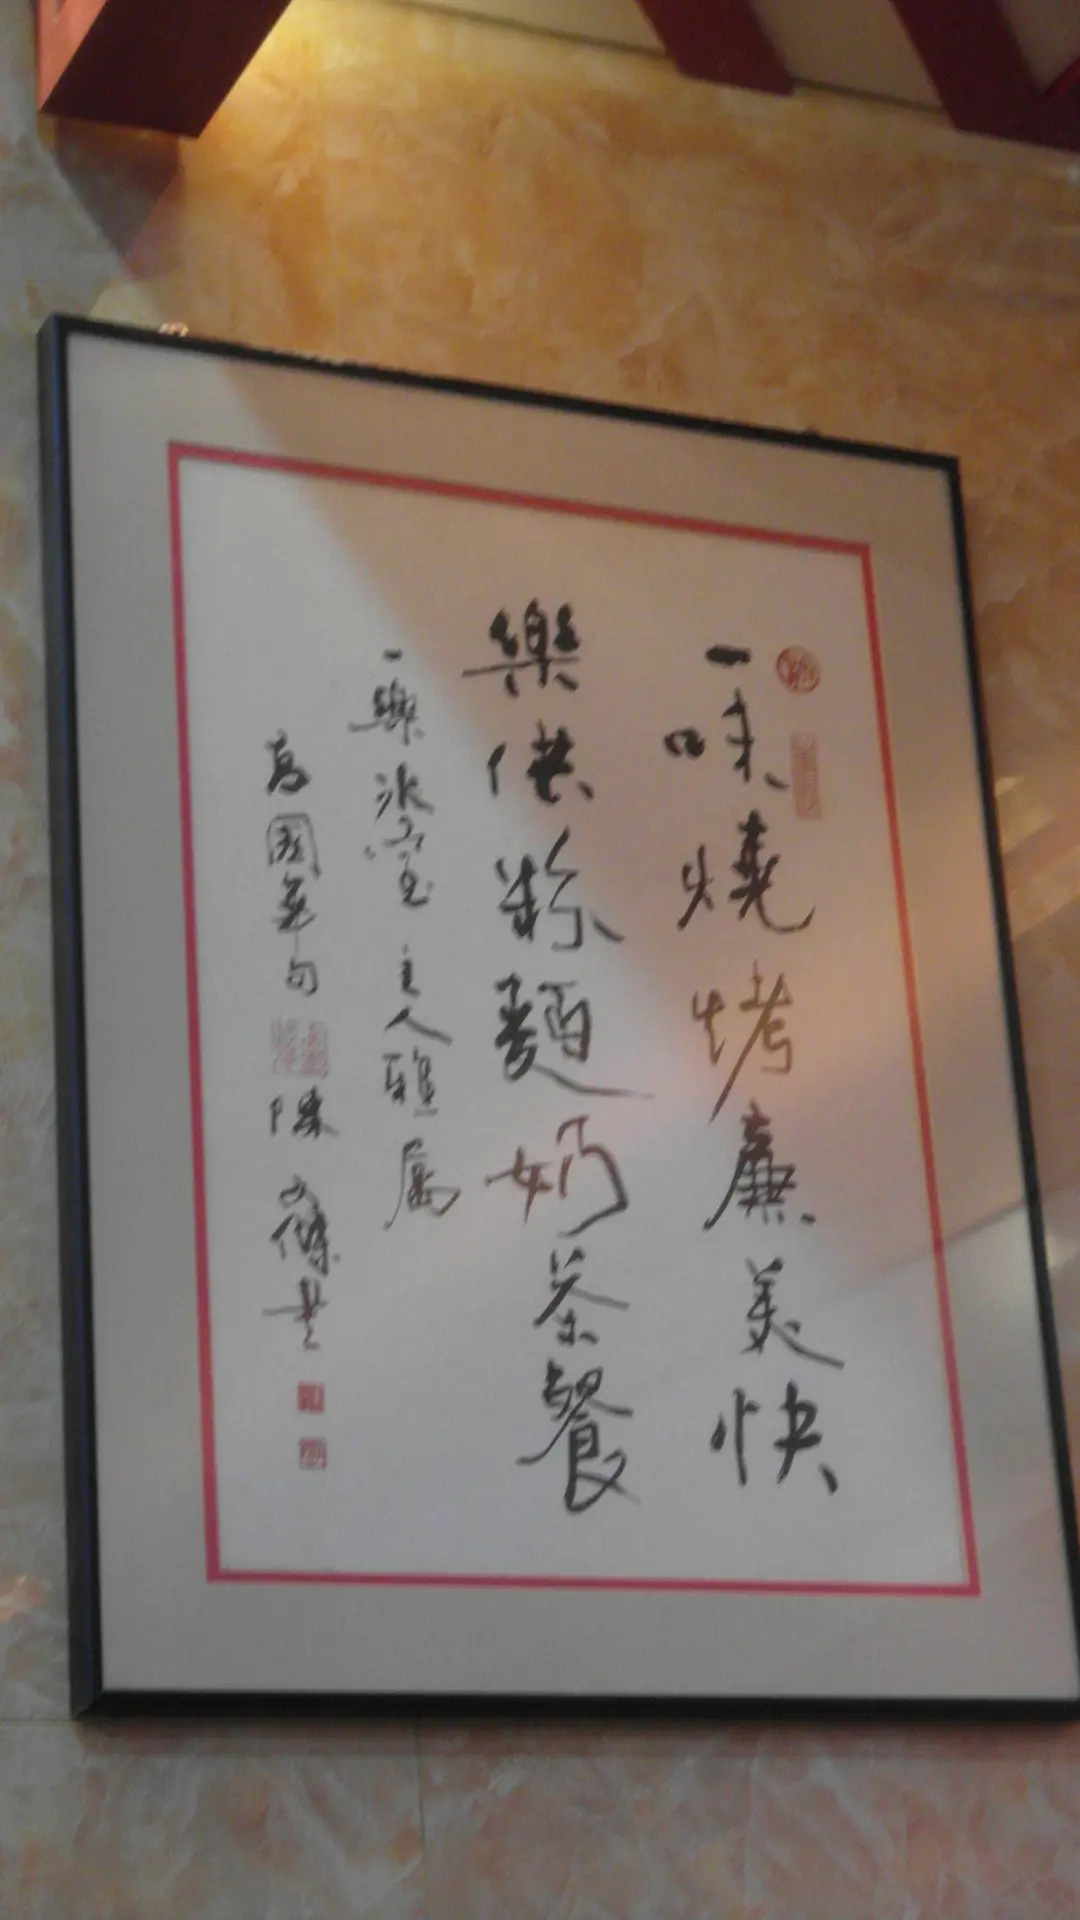 一味燒烤廉美快
樂供粉麵奶茶餐
一樂冰室主人雅屬
高國華句
陳文傑書